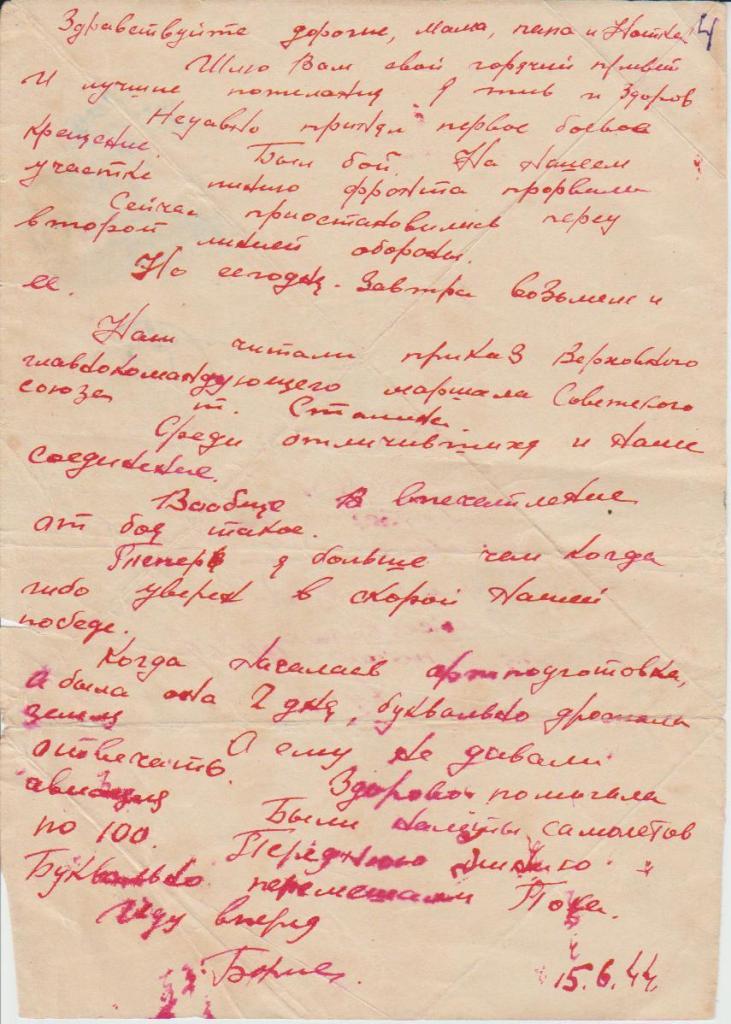 4
Здравствуйте дорогие, мама, папа и Натка
Шлю Вам свой горячий привет
и лучшие пожелания Я жив и здоров
Недавно принял первое боевое
крещение. Был бой. На нашем
участке линию фронта прорвали
Сейчас приостановились перед
второй линией обороны.
Но сегодня - завтра возьмем и
ее.
Нам читали приказ Верховного
главнокомандующего маршала Советского
союза т. Сталина.
Среди отличившихся и наше
соединение.
Вообще впечатление
от боя такое.
Теперь я больше чем когда
либо уверен в скорой нашей
победе.
Когда началась артподготовка,
а была она 2 дня, буквально дрожала
земля А ему не давали
отвечать. Здорово помогала
авиация Были налеты самолетов
по 100. Переднюю линию
Буквально перемешали Пока.
Иду вперед
Борис.
15.6.44